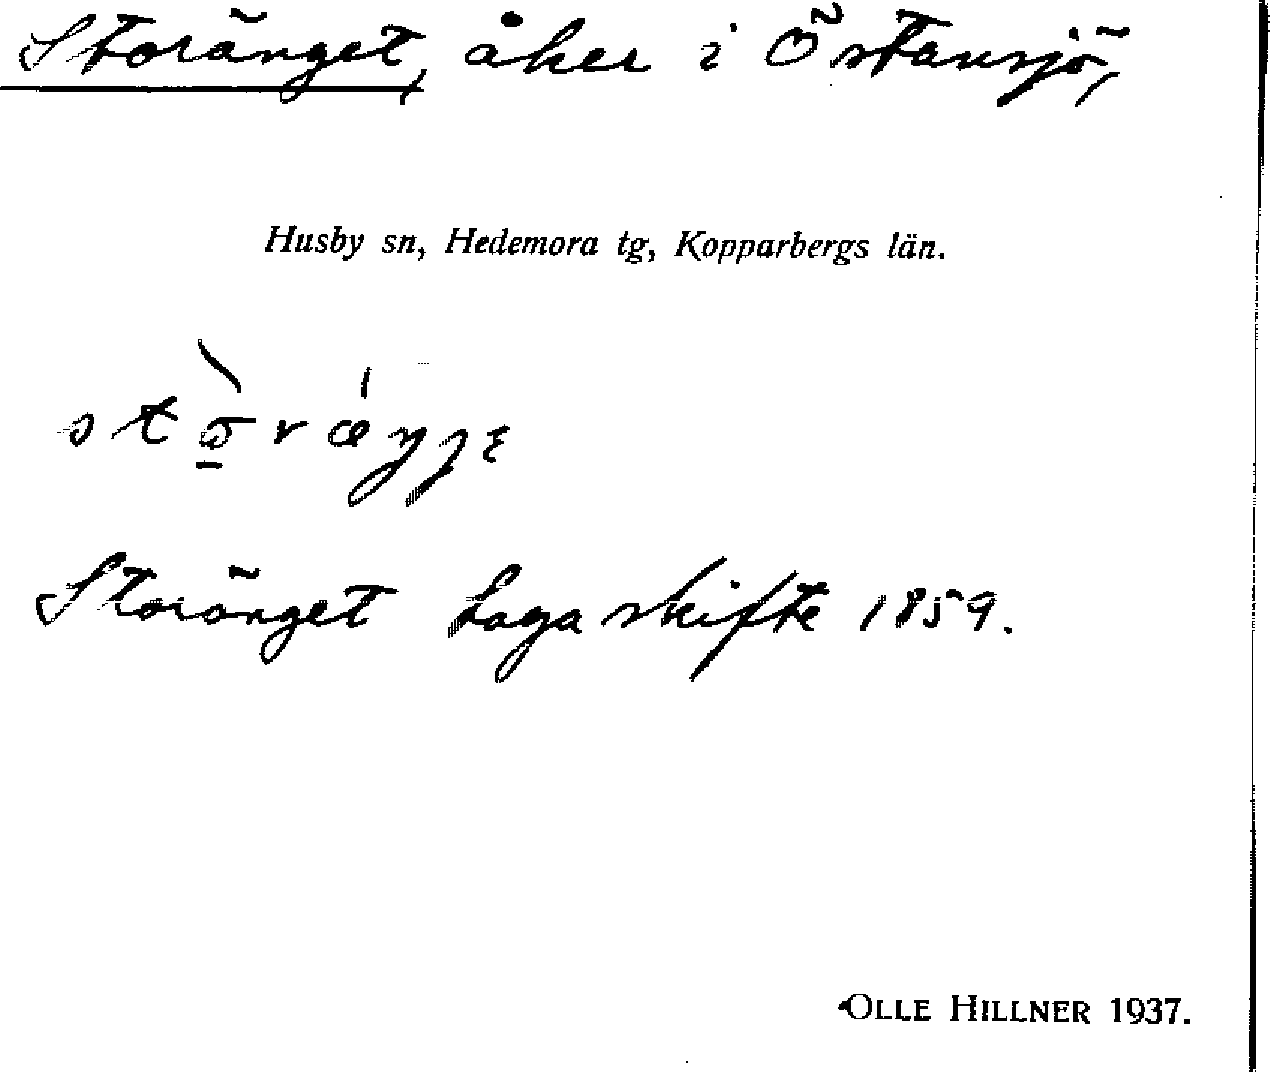 Storänget, åker i Östansjö,
Husby sn, Hedemora tg, Kopparbergs län.
Storänget Laga skifte 1859.
OLLE HILLNER 1937.